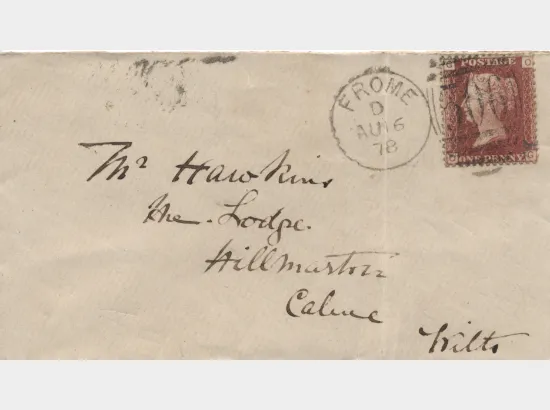 FROME
D
AU 16
78
POSTAGE
ONE PENNY
Mr Hawkins
The Lodge.
Hillmarton
Calne
Wilts